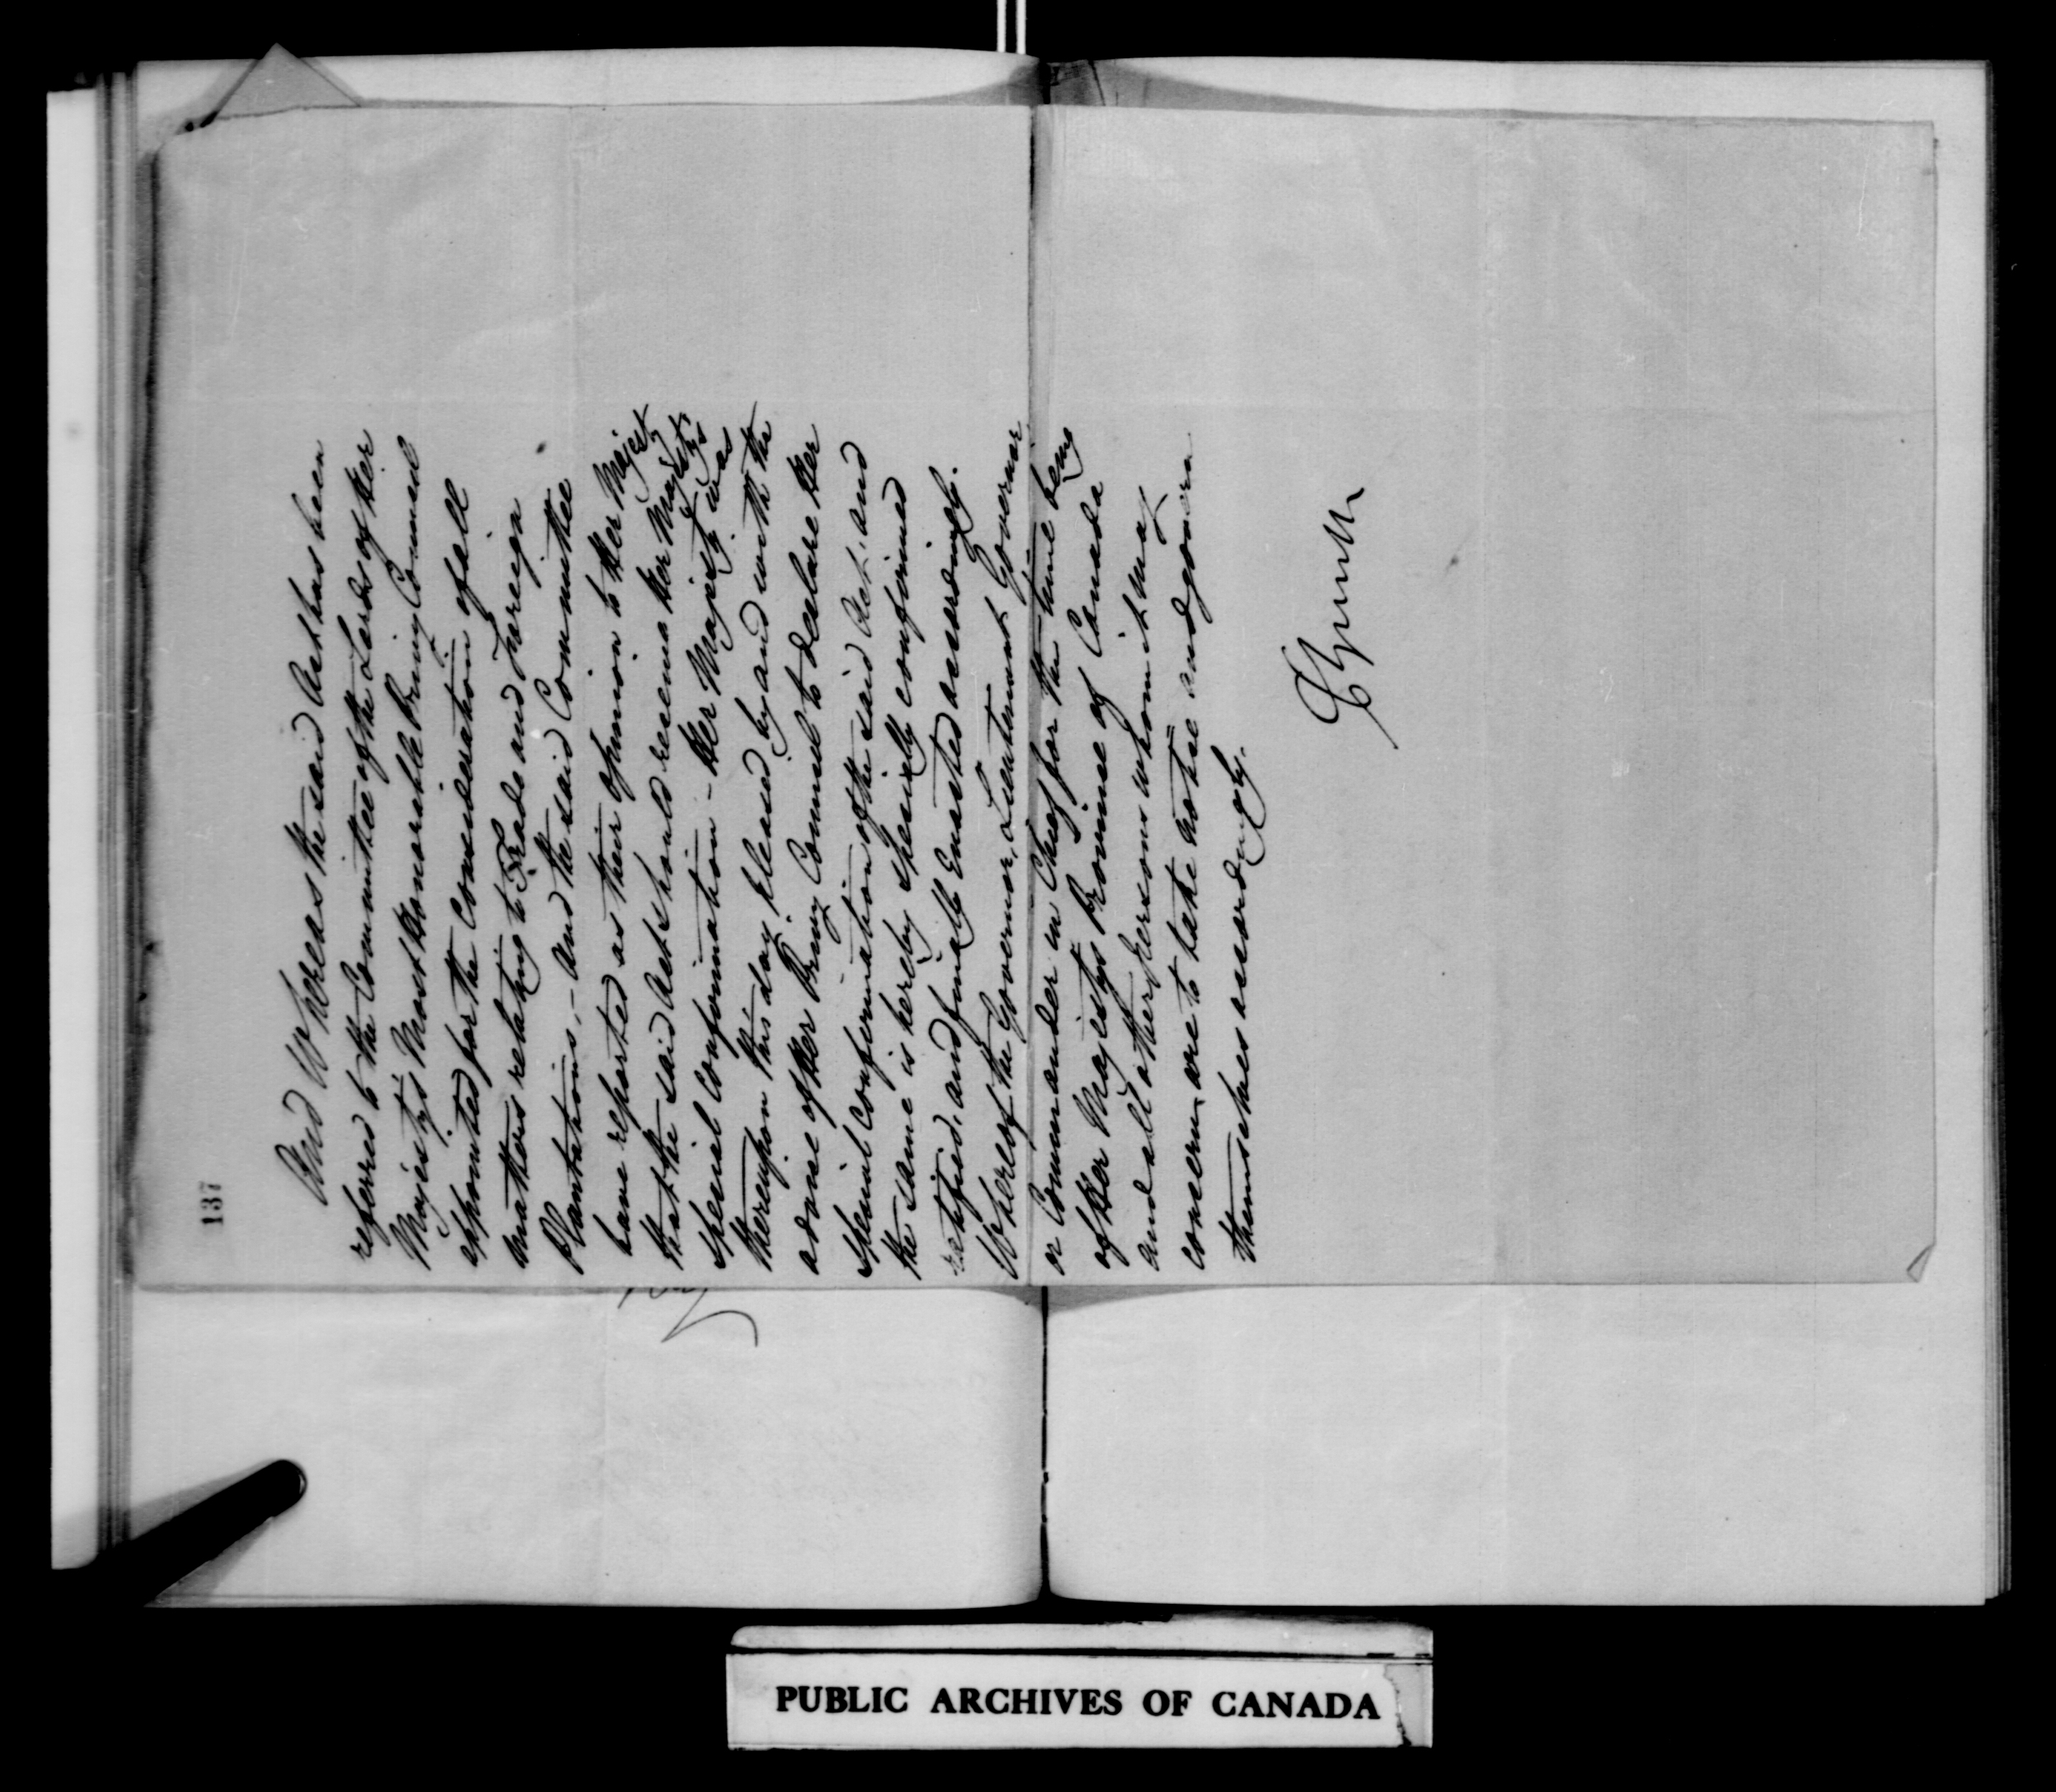 137
And Whereas the said Act has been
referred to the Committee of the Lords of Her
Majesty's Most Honorable Privy Council
appointed for the Consideration of all
matters relating to Trade and Foreign
Plantations,- And the said Committee
have reported as their opinion to Her Majesty
that the said Act should receive Her Majesty's
special Confirmation - Her Majesty was
thereupon this day pleased by and with the
advice of Her Privy Council to declare Her
special Confirmation of the said Act, and
the same is hereby specially confirmed
ratified, and finally Enacted accordingly.
Whereof the Governor, Lieutenant Governor
or Commander in Chief for the time being
of Her Majesty's Province of Canada
and all other persons whom it may
concern, are to take notice and govern
themselves accordingly.
PUBLIC ARCHIVES OF CANADA